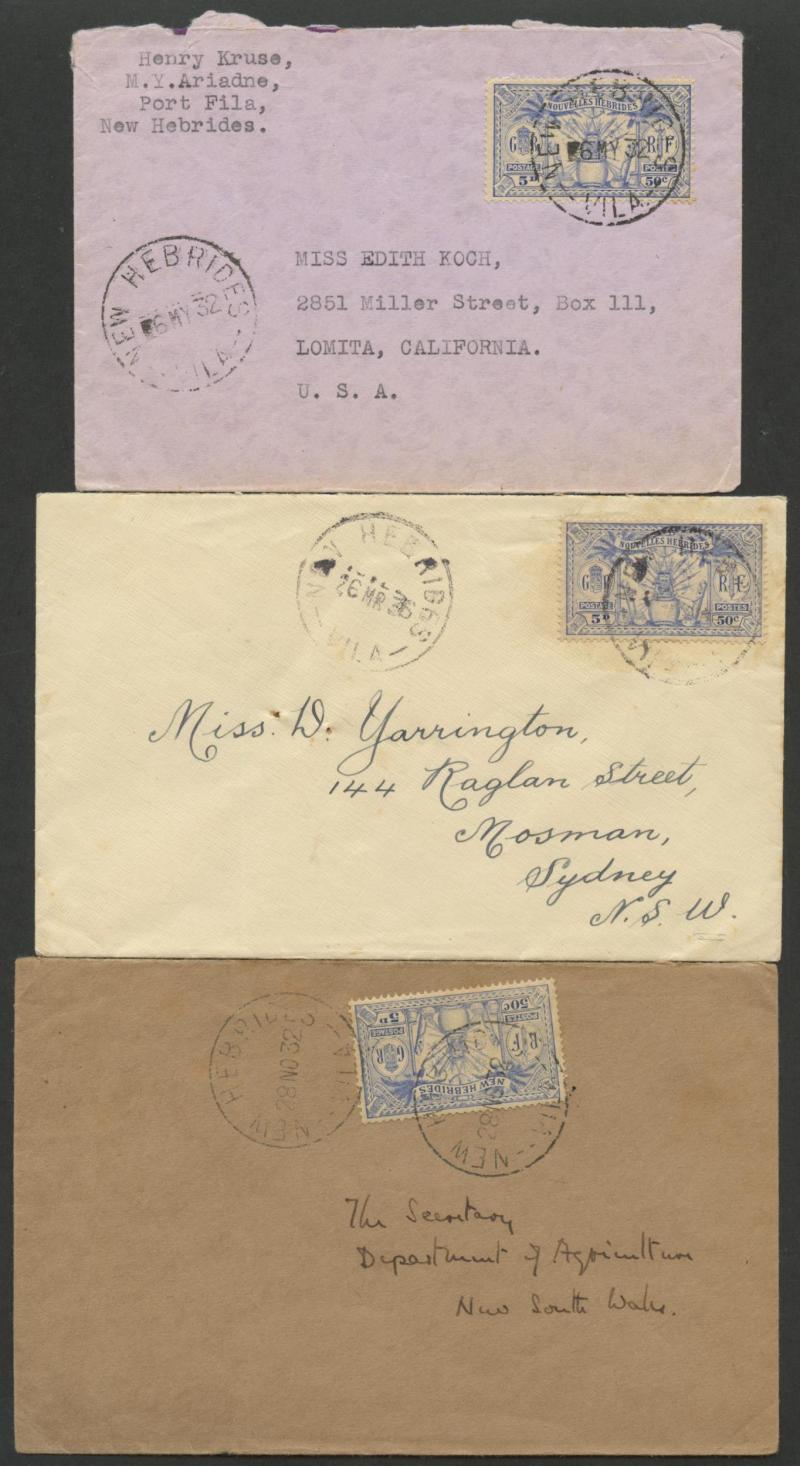 Henry Kruse,
M.Y.Ariadne,
Port Fila,
New Hebrides.
NOUVELLES HEBRIDES
G R R F
POSTAGE POSTES
5D 50c
NEW HEBRIDES
6 MY 32
VILA
NEW HEBRIDES
6 MY 32
VILA
MISS EDITH KOCH,
2851 Miller Street, Box 111,
LOMITA, CALIFORNIA.
U. S. A.
NEW HEBRIDES
26 MR 36
VILA
NOUVELLES HEBRIDES
G R R F
POSTAGE POSTES
5D 50c
Miss. D. Yarrington,
144 Raglan Street,
Mosman,
Sydney
N. S. W.
NEW HEBRIDES
28 NO 32
VILA
NEW HEBRIDES
R F G R
POSTES POSTAGE
50c 5D
NEW
28
VILA
The Secretary
Department of Agriculture
New South Wales.